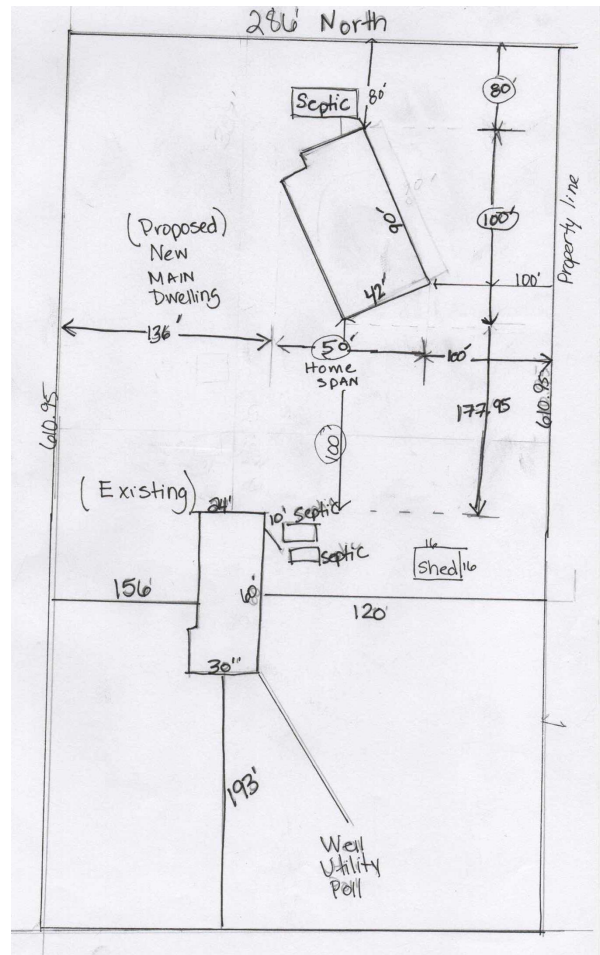 286' North
Septic
80'
80'
100'
90'
42'
Property line
100'
(Proposed)
New
MAIN
Dwelling
136"
50'
Home
SPAN
100'
177.95
610.95
610.95
100'
(Existing)
24'
10' Septic
septic
16
Shed 16
156'
60'
120'
30"'
193'
Well
Utility
Poll